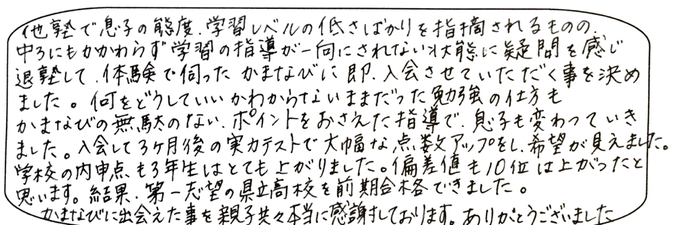 他塾で息子の態度、学習レベルの低さばかりを指摘されるものの、
中3にもかかわらず学習の指導が一向にされない状態に疑問を感じ
退塾して、体験で伺ったかまなびに即、入会させていただく事を決め
ました。何をどうしていいかわからないままだった勉強の仕方も
かまなびの無駄のない、ポイントをおさえた指導で、息子も変わっていき
ました。入会して3ヶ月後の実力テストで大幅な点数アップをし、希望が見えました。
学校の内申点も3年生はとても上がりました。偏差値も10位は上がったと
思います。結果、第一志望の県立高校を前期合格できました。
かまなびに出会えた事を親子共々本当に感謝しております。ありがとうございました